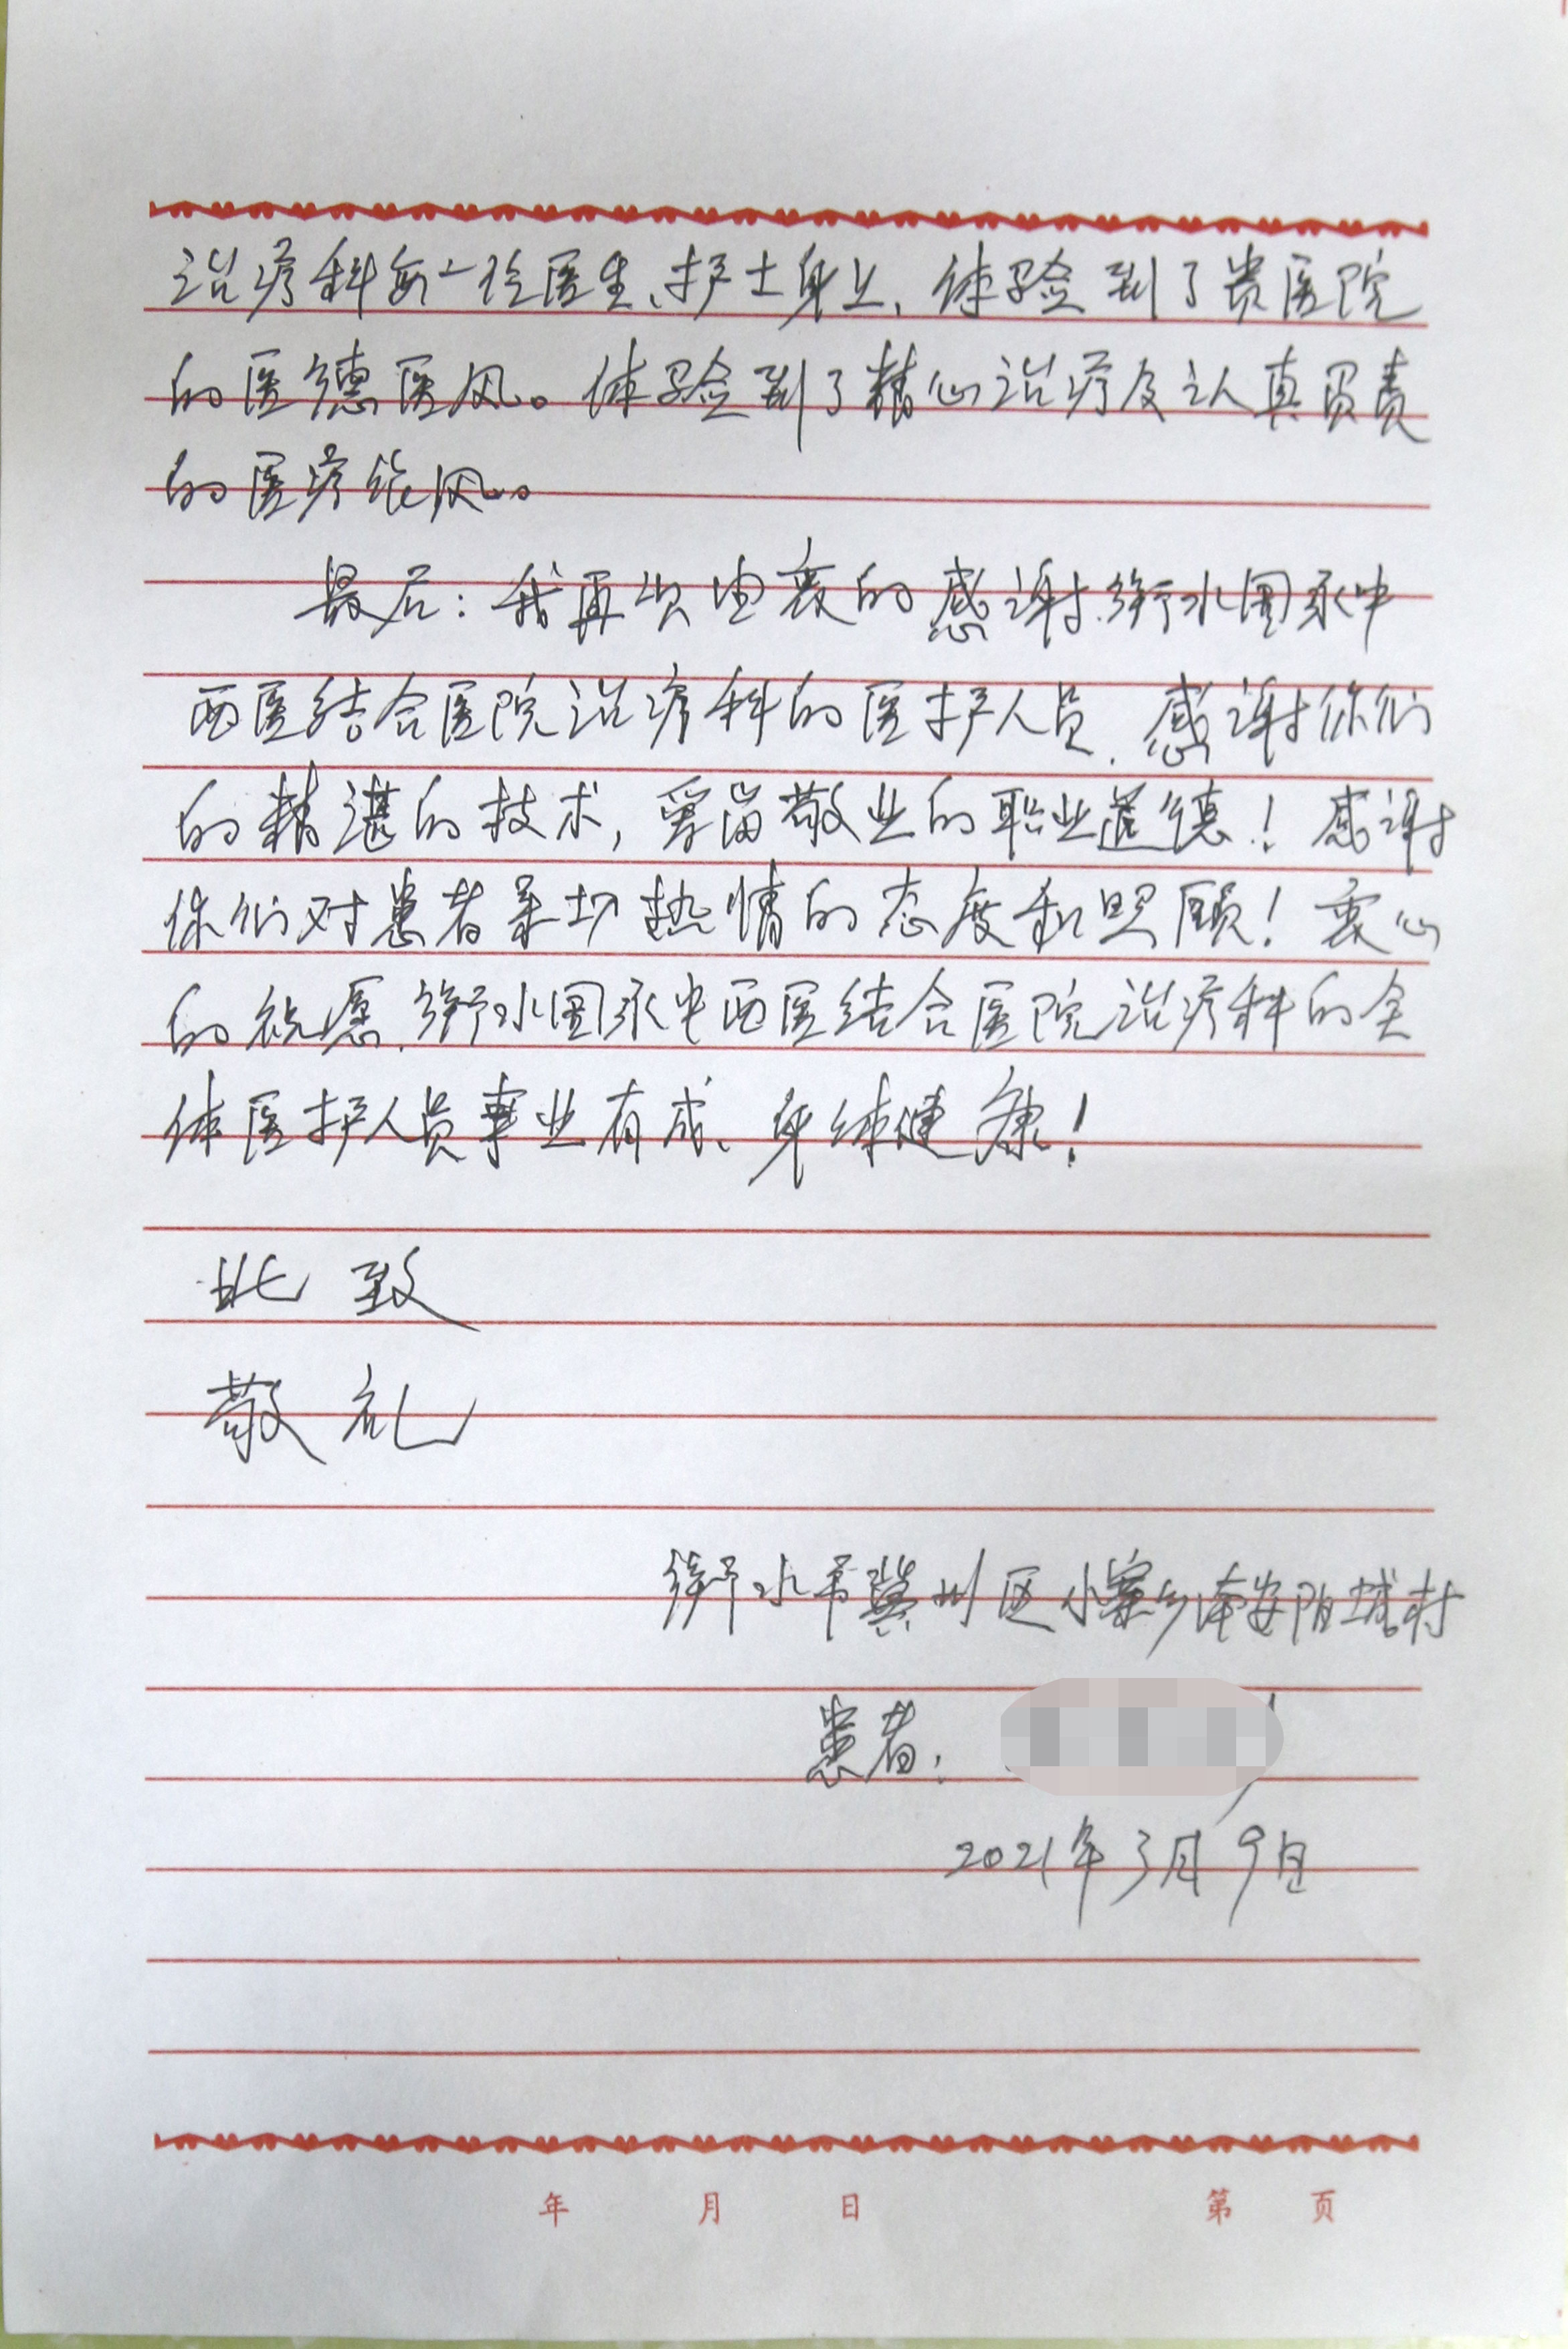 治疗科每一位医生、护士身上、体验到了贵医院
的医德医风。体验到了精心治疗及认真负责
的医疗作风。
最后：我再次由衷的感谢.衡水围永中
西医结合医院治疗科的医护人员、感谢你们
的精湛的技术，爱岗敬业的职业道德！感谢
你们对患者亲切热情的态度和照顾！衷心
的祝愿、衡水围永中西医结合医院治疗科的全
体医护人员事业有成、身体健康！
此致
敬礼
衡水市冀州区小寨乡南安阳城村
患者：
2021年3月9日
年 月 日 第 页